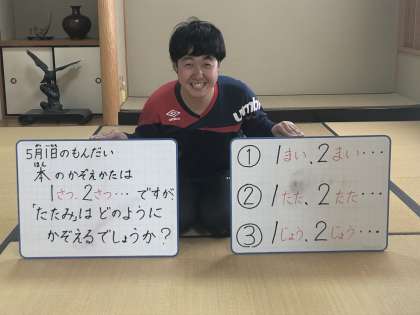 5月1日のもんだい
ほん
本のかぞえかたは
1さつ、2さつ…ですが、
「たたみ」は どのように
かぞえるでしょうか?
① 1まい、2まい…
② 1たた、2たた…
③ 1じょう、2じょう…
umbro